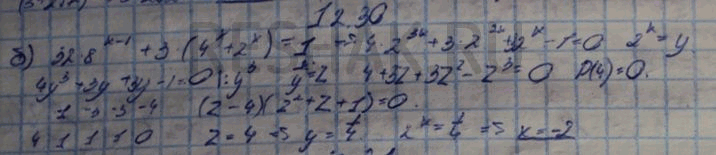 12.30
б) 32·8^(x-1) + 3·(4^x + 2^x) = 1 => 4·2^(3x) + 3·2^(2x) + 3·2^x - 1 = 0 2^x = y
4y^3 + 3y + 3y - 1 = 0 | : y^3 1/y = z 4 + 3z + 3z^2 - z^3 = 0 P(4) = 0.
1 -3 -3 -4 (z-4)(z^2 + z + 1) = 0.
4 1 1 1 0 z = 4 => y = 1/4 2^x = 1/4 => x = -2